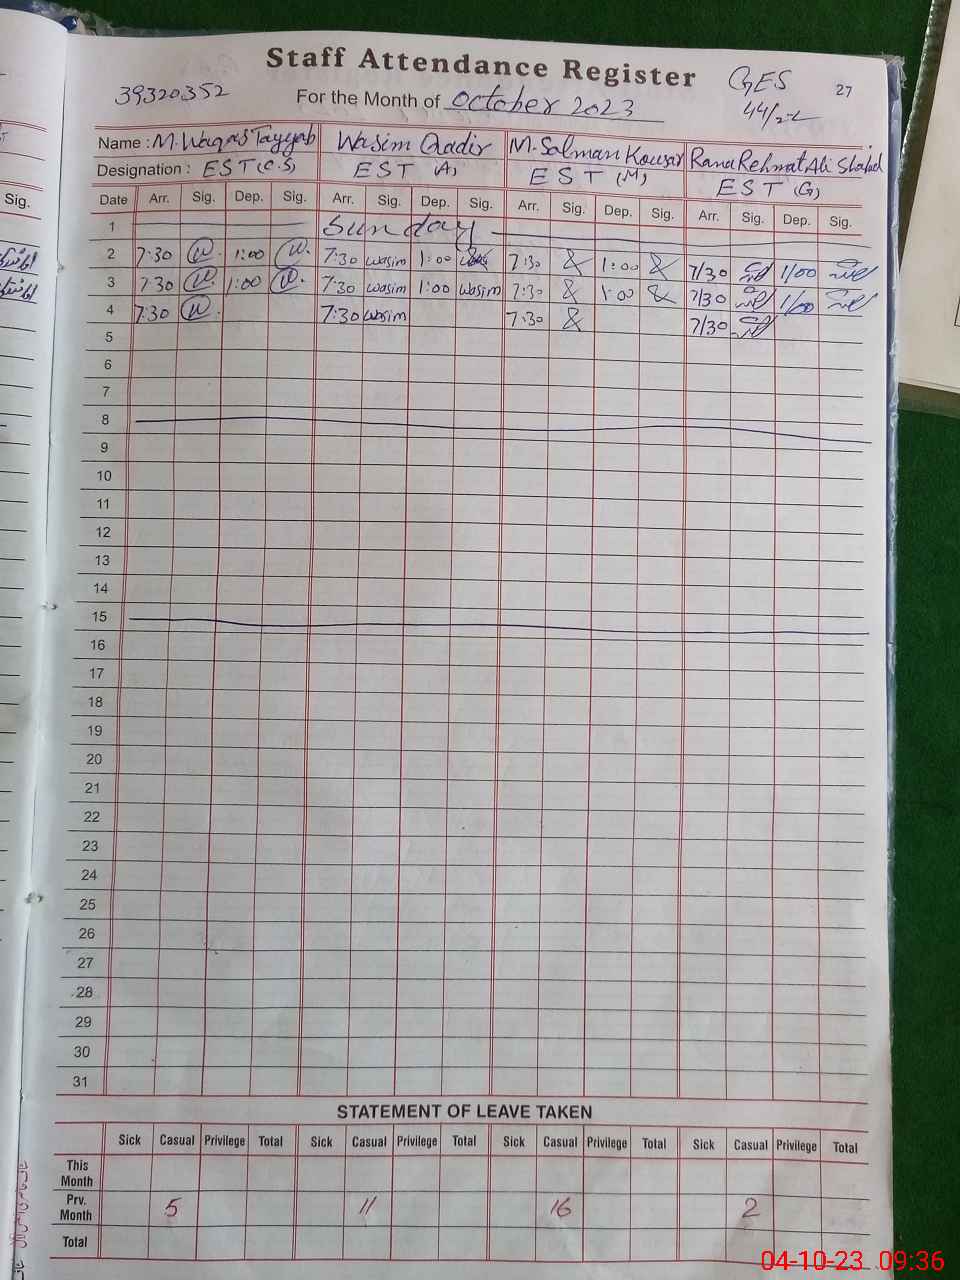 Staff Attendance Register
GES
27
39320352
For the Month of October 2023
44/2-L
Name : M. Waqas Tayyab Wasim Qadir M. Salman Kousar Rana Rehmat Ali Shahid
Designation : EST (C.S) EST (A) EST (M) EST (G)
Sig.
Date Arr. Sig. Dep. Sig. Arr. Sig. Dep. Sig. Arr. Sig. Dep. Sig. Arr. Sig. Dep. Sig.
1 Sunday
2 7:30 W. 1:00 W. 7:30 wasim 1:00 7:30 1:00 7/30 1/00
3 7:30 W. 1:00 W. 7:30 wasim 1:00 wasim 7:30 1:00 7/30 1/00
4 7:30 W. 7:30 wasim 7:30 7/30
5
6
7
8
9
10
11
12
13
14
15
16
17
18
19
20
21
22
23
24
25
26
27
28
29
30
31
STATEMENT OF LEAVE TAKEN
Sick Casual Privilege Total Sick Casual Privilege Total Sick Casual Privilege Total Sick Casual Privilege Total
This Month
Prv. Month 5 11 16 2
Total
04-10-23 09:36